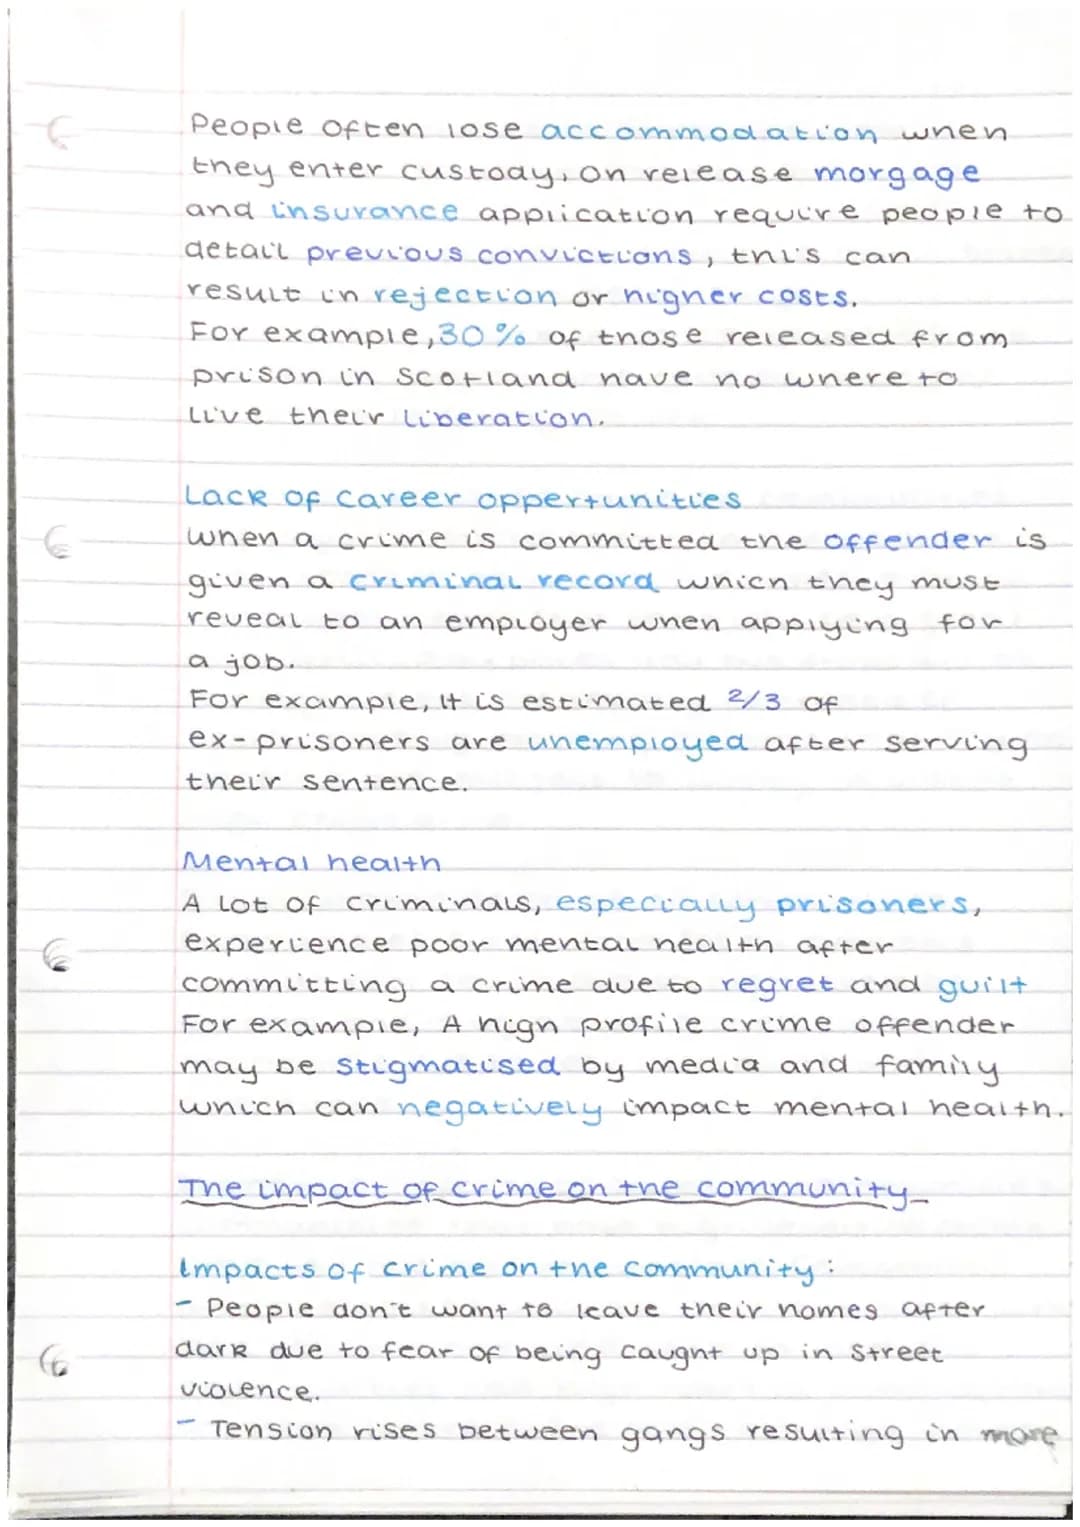 People often lose accommodation when
they enter custody, on release morgage
and insurance application require people to
detail previous convictions, this can
result in rejection or higher costs.
For example, 30% of those released from
prison in Scotland have no where to
live their liberation.
Lack of career oppertunities
when a crime is committed the offender is
given a criminal record which they must
reveal to an employer when applying for
a job.
For example, It is estimated 2/3 of
ex-prisoners are unemployed after serving
their sentence.
Mental health
A lot of criminals, especially prisoners,
experience poor mental health after
committing a crime due to regret and guilt
For example, A high profile crime offender
may be stigmatised by media and family
which can negatively impact mental health.
The impact of crime on the community
Impacts of crime on the community:
- People don't want to leave their homes after
dark due to fear of being caught up in street
violence.
- Tension rises between gangs resulting in more